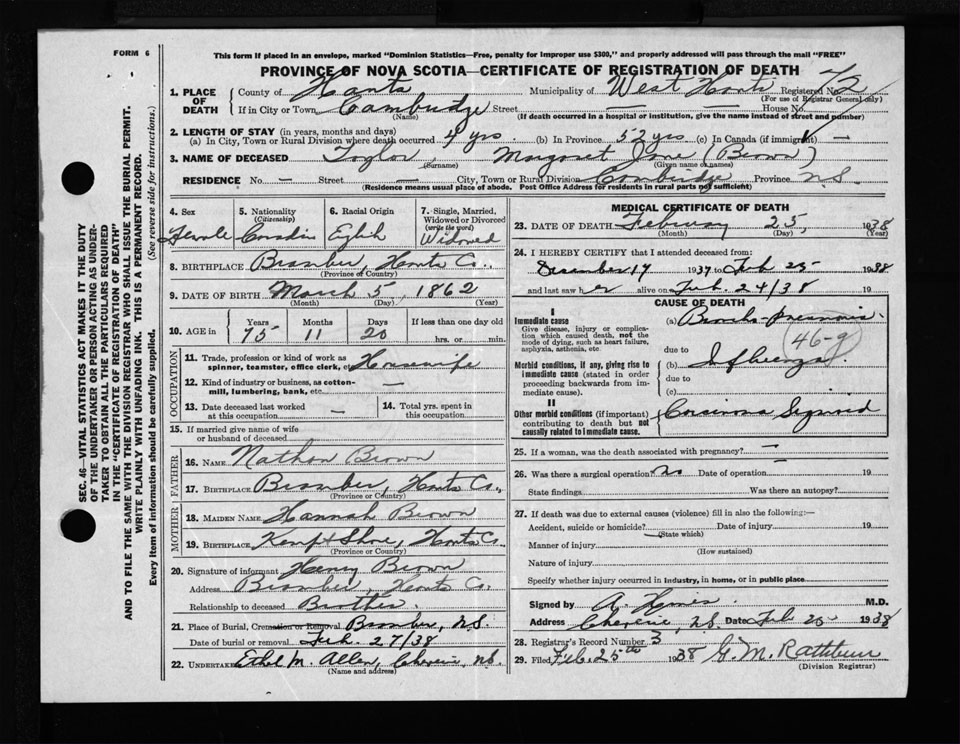 FORM 6
This form if placed in an envelope, marked "Dominion Statistics—Free, penalty for improper use $300," and properly addressed will pass through the mail "FREE"
PROVINCE OF NOVA SCOTIA—CERTIFICATE OF REGISTRATION OF DEATH
SEC. 46—VITAL STATISTICS ACT MAKES IT THE DUTY
OF THE UNDERTAKER OR PERSON ACTING AS UNDER-
TAKER TO OBTAIN ALL THE PARTICULARS REQUIRED
IN THE "CERTIFICATE OF REGISTRATION OF DEATH"
AND TO FILE THE SAME WITH THE DIVISION REGISTRAR WHO SHALL ISSUE THE BURIAL PERMIT.
WRITE PLAINLY WITH UNFADING INK. THIS IS A PERMANENT RECORD.
Every item of information should be carefully supplied. (See reverse side for instructions.)
1. PLACE OF DEATH County of Hants Municipality of West Hants Registered No. 72
(For use of Registrar General only)
If in City or Town Cambridge Street — House No. —
(Name) (If death occurred in a hospital or institution, give the name instead of street and number)
2. LENGTH OF STAY (in years, months and days)
(a) In City, Town or Rural Division where death occurred 4 yrs. (b) In Province 52 yrs (c) In Canada (if immigrant) —
3. NAME OF DECEASED Taylor, Margaret Jane (Brown)
(Surname) (Given name or names)
RESIDENCE No. — Street — City, Town or Rural Division Cambridge Province N.S.
(Residence means usual place of abode. Post Office Address for residents in rural parts not sufficient)
4. Sex 5. Nationality 6. Racial Origin 7. Single, Married,
(Citizenship) Widowed or Divorced
(write the word)
Female Canadian English Widowed
8. BIRTHPLACE Bramber, Hants Co.,
(Province or Country)
9. DATE OF BIRTH March 5, 1862
(Month) (Day) (Year)
10. AGE in Years Months Days If less than one day old
75 11 20 hrs. or min.
OCCUPATION
11. Trade, profession or kind of work as
spinner, teamster, office clerk, etc. Housewife
12. Kind of industry or business, as cotton-
mill, lumbering, bank, etc. —
13. Date deceased last worked
at this occupation —
14. Total yrs. spent in
this occupation
15. If married give name of wife
or husband of deceased
FATHER
16. NAME Nathan Brown
17. BIRTHPLACE Bramber, Hants Co.,
(Province or Country)
MOTHER
18. MAIDEN NAME Hannah Brown
19. BIRTHPLACE Kempt Shore, Hants Co.
(Province or Country)
20. Signature of informant Henry Brown
Address Bramber, Hants Co.
Relationship to deceased Brother.
21. Place of Burial, Cremation or Removal Bramber, N.S.
Date of burial or removal Feb. 27/38
22. UNDERTAKER Ethel M. Allen, Cheverie, N.S.
(Name and address)
MEDICAL CERTIFICATE OF DEATH
23. DATE OF DEATH February 25, 1938
(Month) (Day) (Year)
24. I HEREBY CERTIFY that I attended deceased from:
December 17 1937 to Feb 25 1938
and last saw her alive on Feb. 24/38 19
CAUSE OF DEATH
I
Immediate cause (a) Broncho-pneumonia.
Give disease, injury or complica-
tion which caused death, not the
mode of dying, such as heart failure,
asphyxia, asthenia, etc
46-g
due to
Morbid conditions, if any, giving rise to
immediate cause (stated in order
proceeding backwards from im-
mediate cause).
(b) Influenza.
due to
(c)
II
Other morbid conditions (if important)
contributing to death but not
causally related to immediate cause.
Carcinoma Sigmoid
25. If a woman, was the death associated with pregnancy? —
26. Was there a surgical operation? no Date of operation 19
State findings Was there an autopsy?
27. If death was due to external causes (violence) fill in also the following:—
Accident, suicide or homicide? Date of injury 19
(State which)
Manner of injury
(How sustained)
Nature of injury
Specify whether injury occurred in industry, in home, or in public place
Signed by A. M.D.
Address Cheverie, N.S. Date Feb 25 1938
28. Registrar's Record Number 3
29. Filed Feb. 25th 1938 G. M. Rathbun
(Division Registrar)